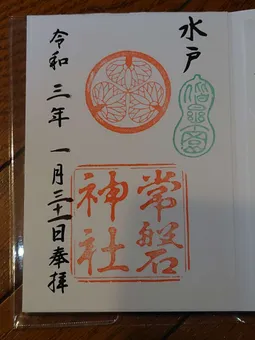 水戸
偕樂園
常磐
神社
令和三年一月三十一日奉拝